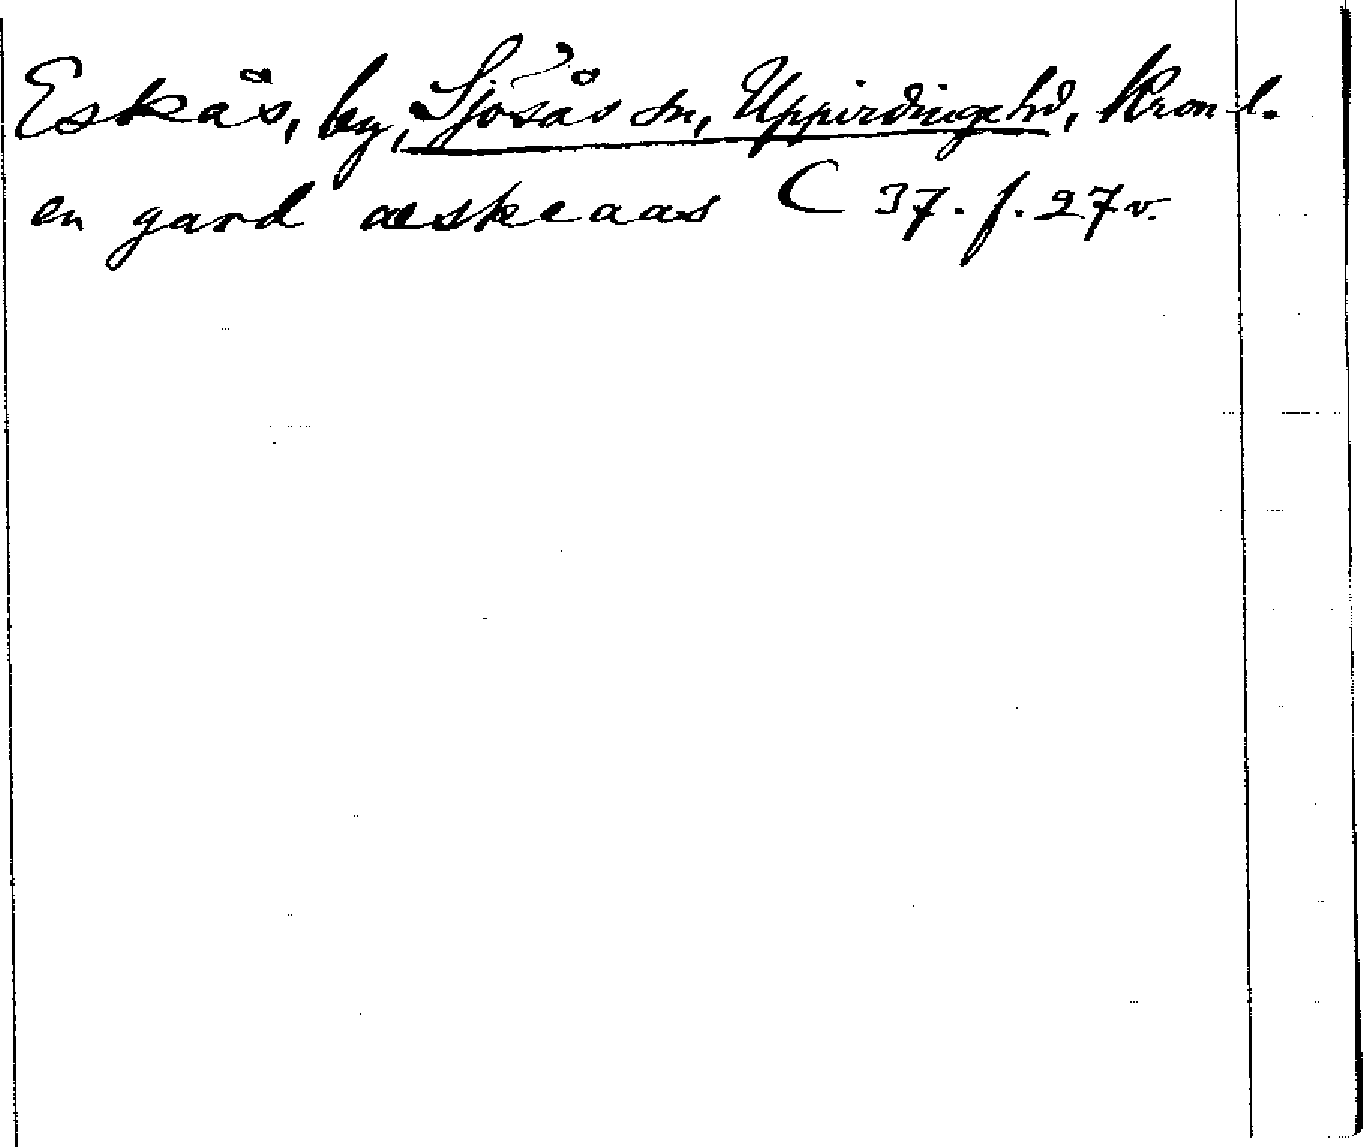 Eskås, by, Sjösås sn, Uppvidinge hd, Kron. l.
en gard æskeaas C 37. f. 27 v.